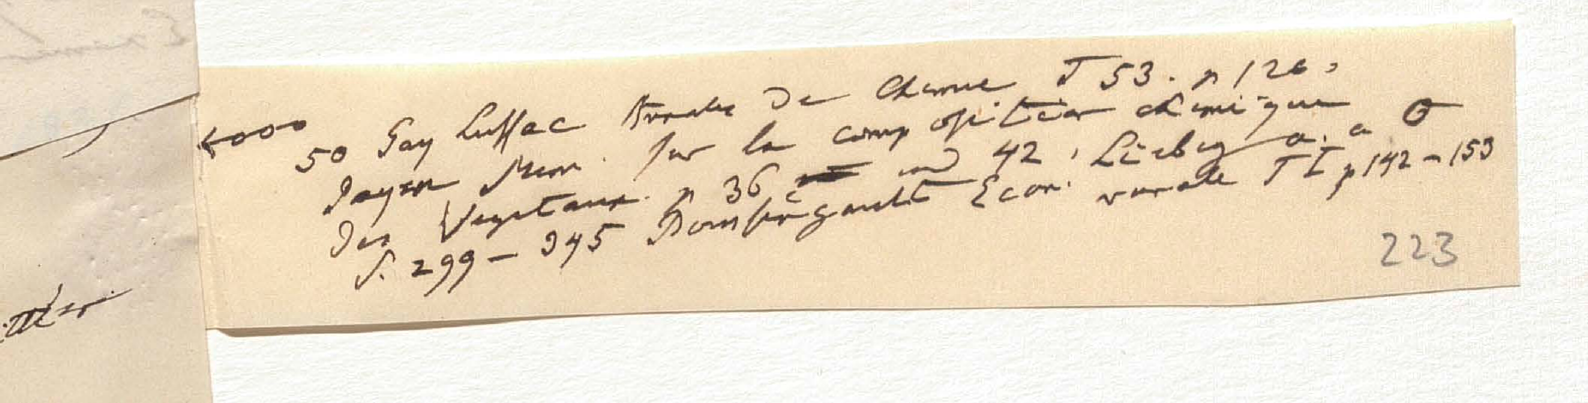 50 Gay Lussac Annales de Chimie T 53. p 120,
Payen Mem. sur la composition chimique
des Vegetaux. p 36 und 42, Liebig a. a O
S. 299–345 Boussingault Econ. rurale T I p 142–153
223